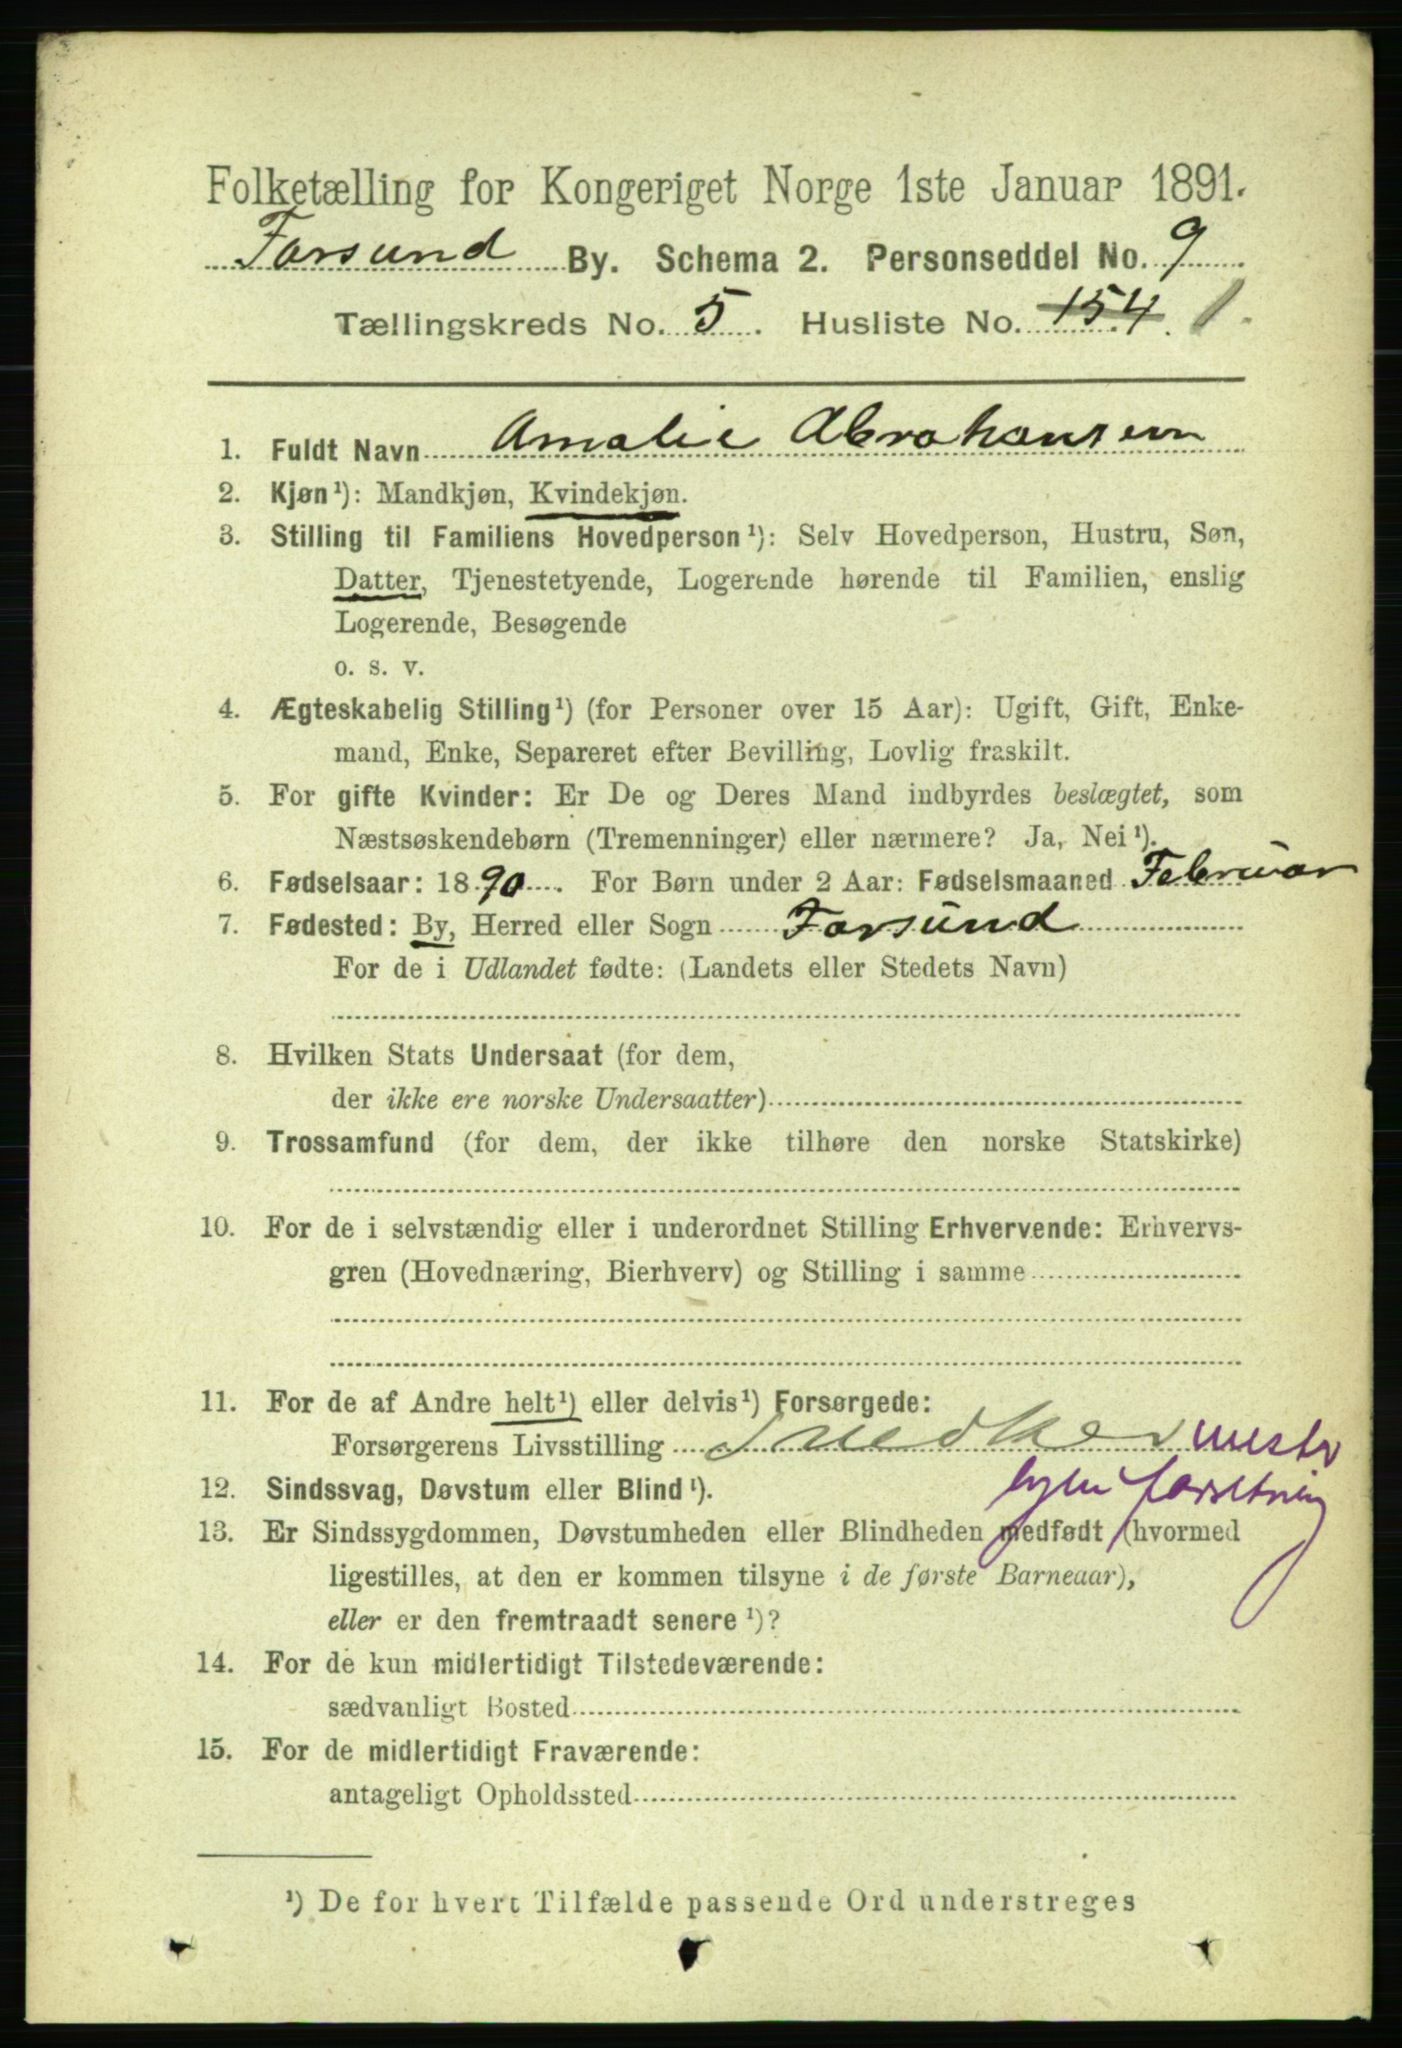 Folketælling for Kongeriget Norge 1ste Januar 1891.
Farsund By. Schema 2. Personseddel No. 9
Tællingskreds No. 5. Husliste No. 154. 1.
1. Fuldt Navn Amalie Abrahamsen
2. Kjøn¹): Mandkjøn, Kvindekjøn.
3. Stilling til Familiens Hovedperson¹): Selv Hovedperson, Hustru, Søn,
Datter, Tjenestetyende, Logerende hørende til Familien, enslig
Logerende, Besøgende
o. s. v.
4. Ægteskabelig Stilling¹) (for Personer over 15 Aar): Ugift, Gift, Enke-
mand, Enke, Separeret efter Bevilling, Lovlig fraskilt.
5. For gifte Kvinder: Er De og Deres Mand indbyrdes beslægtet, som
Næstsøskendebørn (Tremenninger) eller nærmere? Ja, Nei¹).
6. Fødselsaar: 1890. For Børn under 2 Aar: Fødselsmaaned Februar
7. Fødested: By, Herred eller Sogn Farsund
For de i Udlandet fødte: (Landets eller Stedets Navn)
8. Hvilken Stats Undersaat (for dem,
der ikke ere norske Undersaatter)
9. Trossamfund (for dem, der ikke tilhøre den norske Statskirke)
10. For de i selvstændig eller i underordnet Stilling Erhvervende: Erhvervs-
gren (Hovednæring, Bierhverv) og Stilling i samme
11. For de af Andre helt¹) eller delvis¹) Forsørgede:
Forsørgerens Livsstilling Snedker mester
egen forretning
12. Sindssvag, Døvstum eller Blind¹).
13. Er Sindssygdommen, Døvstumheden eller Blindheden medfødt (hvormed
ligestilles, at den er kommen tilsyne i de første Barneaar),
eller er den fremtraadt senere¹)?
14. For de kun midlertidigt Tilstedeværende:
sædvanligt Bosted
15. For de midlertidigt Fraværende:
antageligt Opholdssted
¹) De for hvert Tilfælde passende Ord understreges